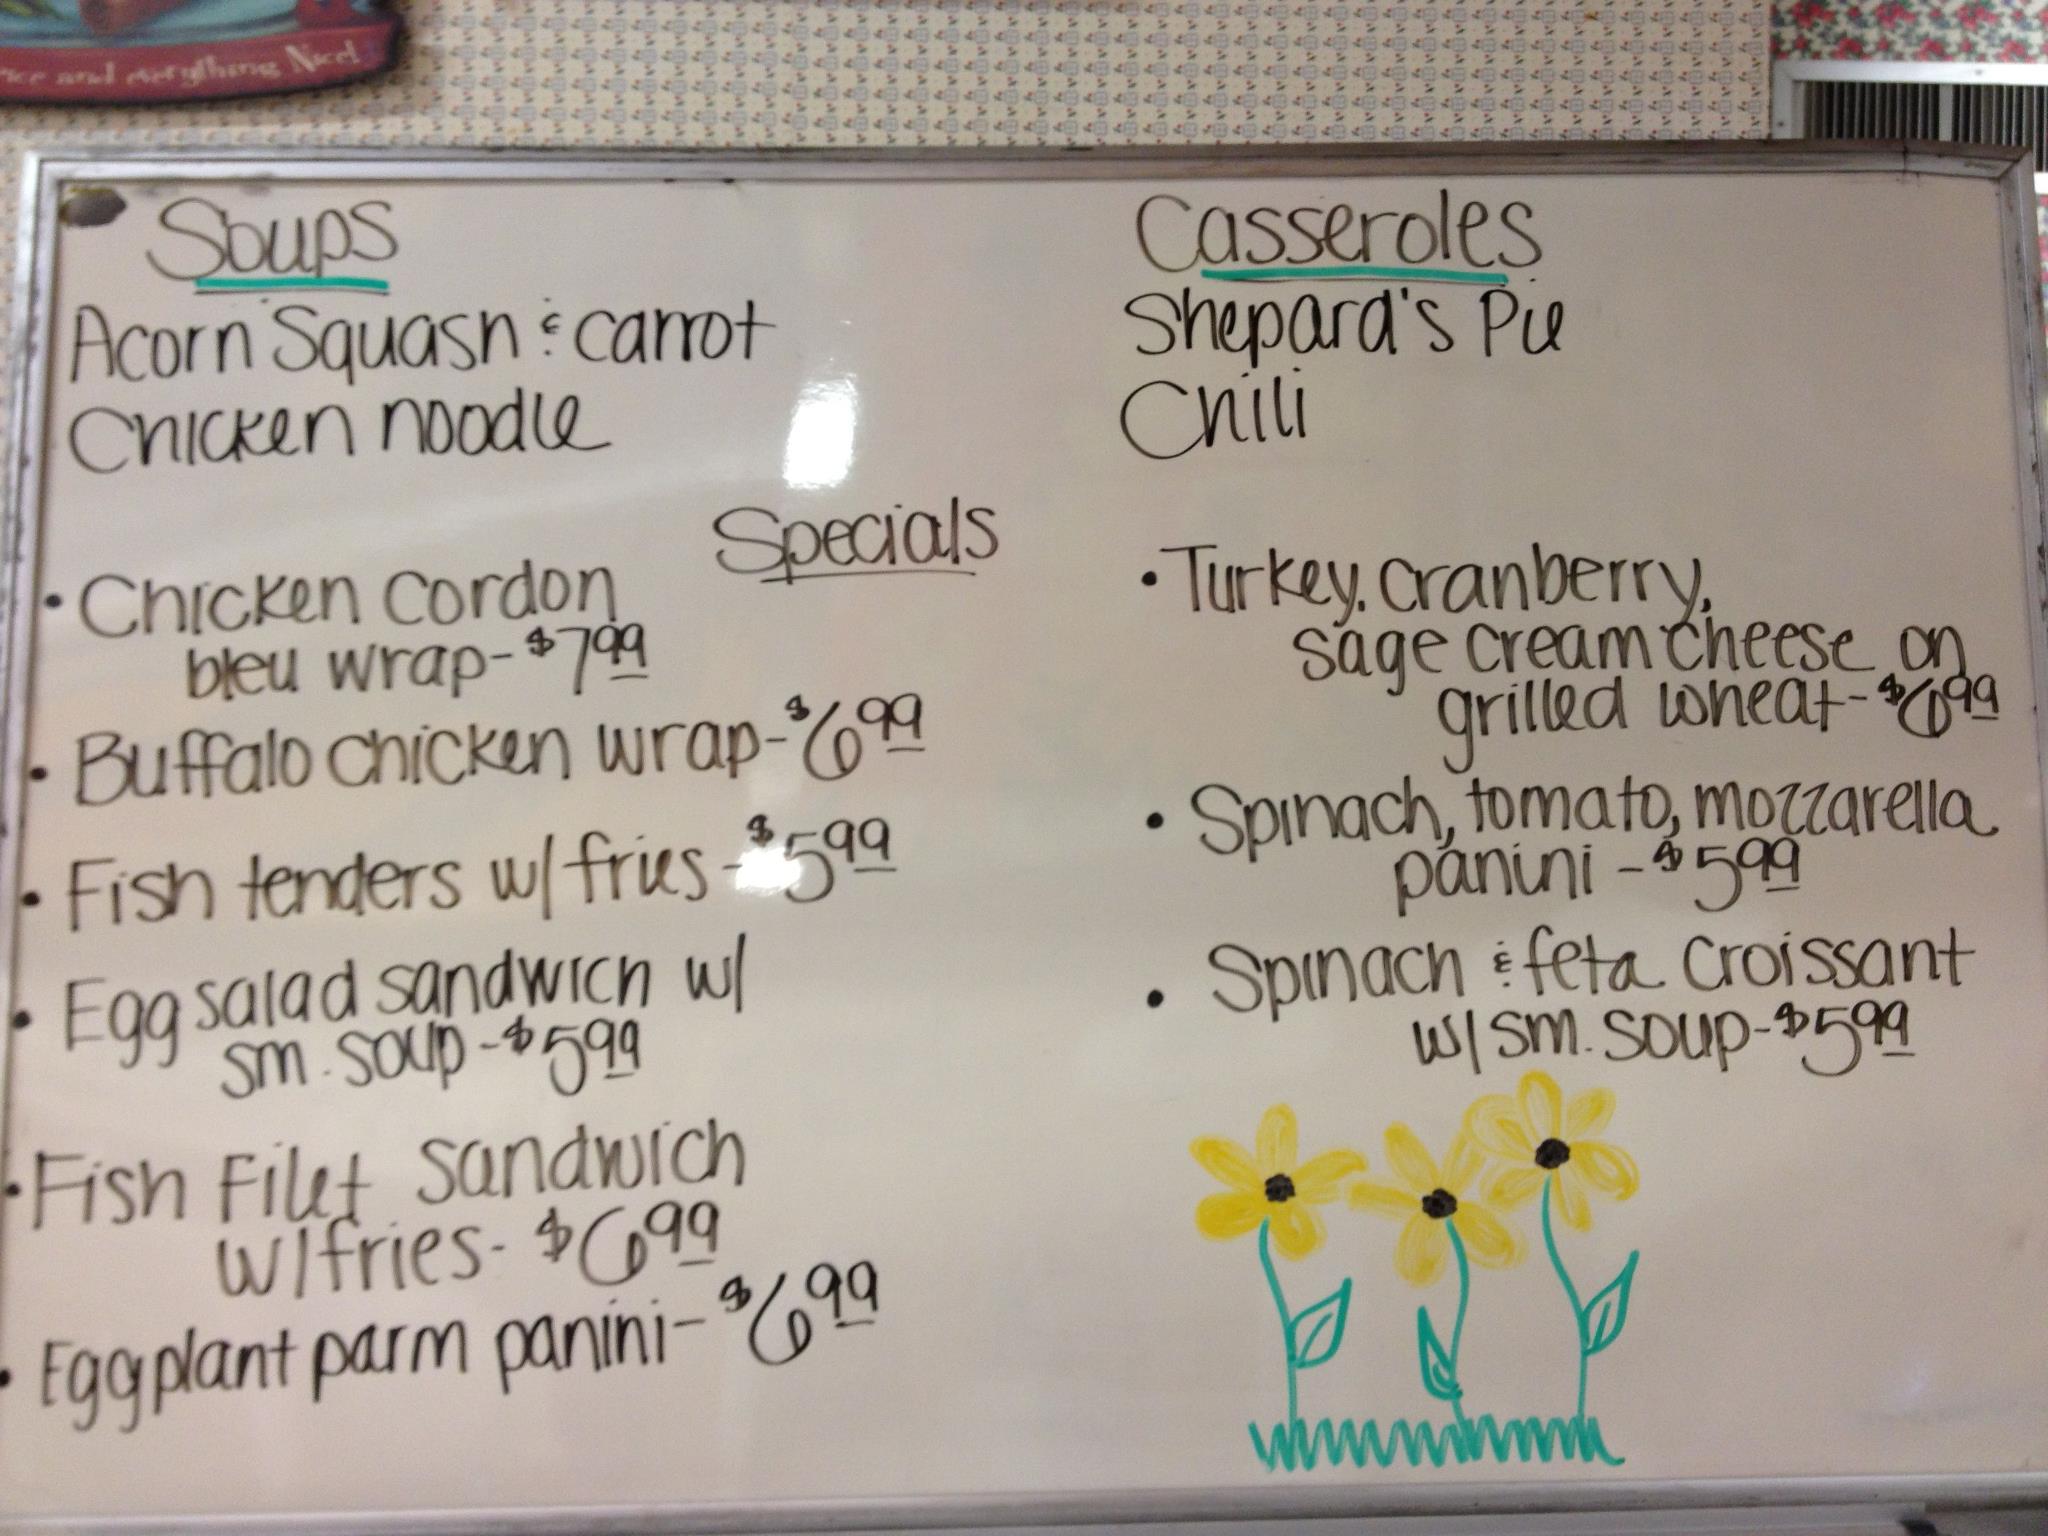 and everything Nice!
Soups
Acorn Squash & carrot
Chicken noodle
Casseroles
Shepard's Pie
Chili
Specials
• Chicken cordon
bleu wrap- $7.99
• Buffalo chicken wrap- $6.99
• Fish tenders w/ fries - $5.99
• Egg salad sandwich w/
sm. soup - $5.99
• Fish Filet sandwich
w/fries- $6.99
• Eggplant parm panini- $6.99
• Turkey, cranberry,
sage cream cheese on
grilled wheat- $6.99
• Spinach, tomato, mozzarella
panini - $5.99
• Spinach & feta croissant
w/ sm. soup- $5.99